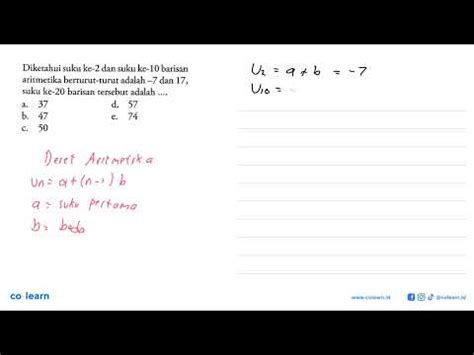 Diketahui suku ke-2 dan suku ke-10 barisan
aritmetika berturut-turut adalah –7 dan 17,
suku ke-20 barisan tersebut adalah ....
a. 37 d. 57
b. 47 e. 74
c. 50
Deret Aritmetika
Un = a + (n-1) b
a = suku pertama
b = beda
U2 = a + b = -7
U10 =
co learn
www.colearn.id
@colearn.id